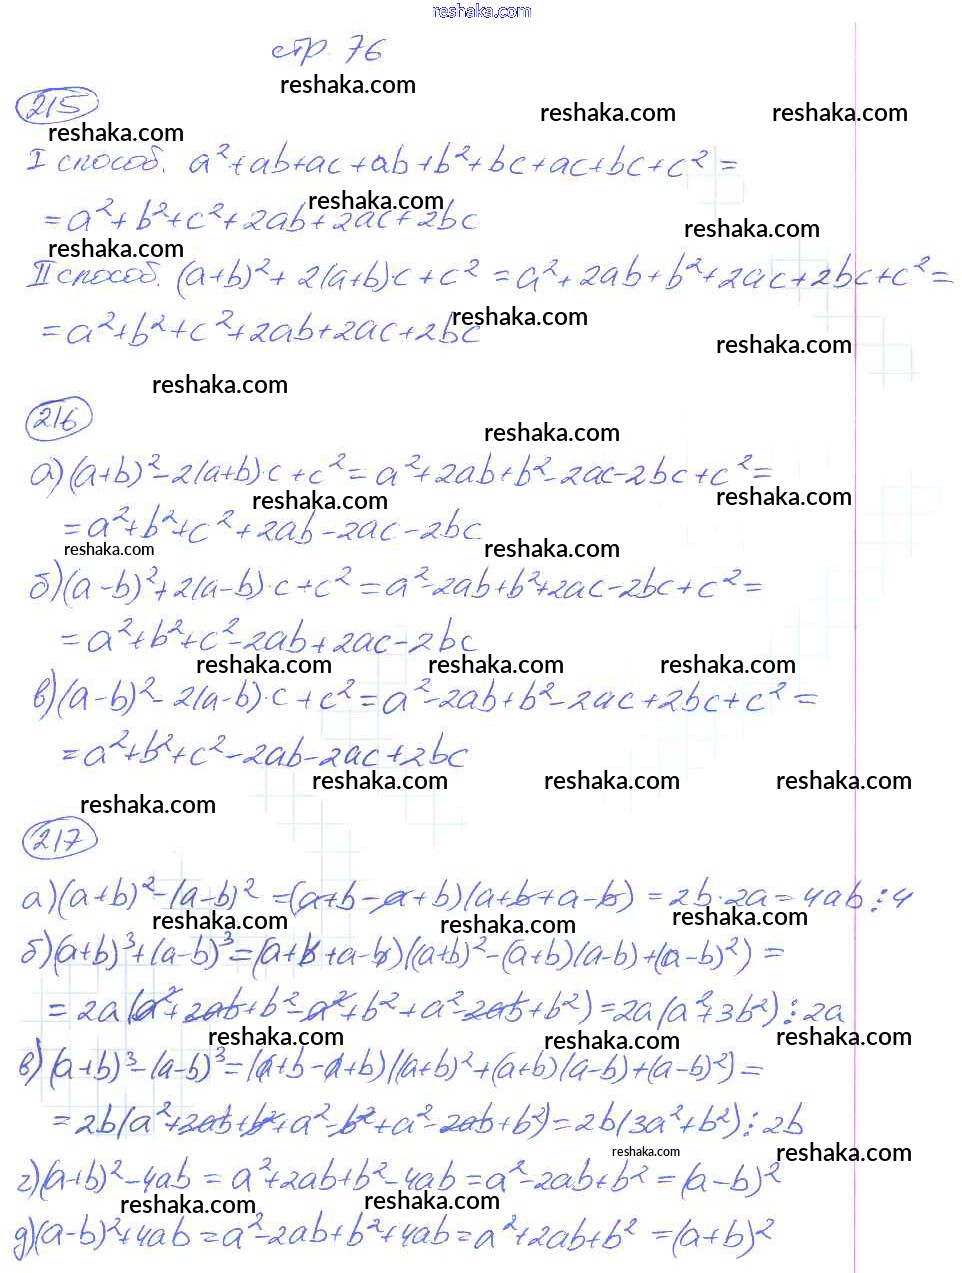 reshaka.com
стр. 76
reshaka.com
215
reshaka.com reshaka.com
reshaka.com
I способ. a²+ab+ac+ab+b²+bc+ac+bc+c²=
reshaka.com
=a²+b²+c²+2ab+2ac+2bc
reshaka.com
reshaka.com
II способ. (a+b)²+2(a+b)·c+c²=a²+2ab+b²+2ac+2bc+c²=
reshaka.com
=a²+b²+c²+2ab+2ac+2bc
reshaka.com
reshaka.com
216
reshaka.com
а)(a+b)²-2(a+b)·c+c²=a²+2ab+b²-2ac-2bc+c²=
reshaka.com reshaka.com
=a²+b²+c²+2ab-2ac-2bc
reshaka.com reshaka.com
б)(a-b)²+2(a-b)·c+c²=a²-2ab+b²+2ac-2bc+c²=
=a²+b²+c²-2ab+2ac-2bc
reshaka.com reshaka.com reshaka.com
в)(a-b)²-2(a-b)·c+c²=a²-2ab+b²-2ac+2bc+c²=
=a²+b²+c²-2ab-2ac+2bc
reshaka.com reshaka.com reshaka.com
reshaka.com
217
а)(a+b)²-(a-b)²=(a+b-a+b)(a+b+a-b)=2b·2a=4ab⋮4
reshaka.com reshaka.com reshaka.com
б)(a+b)³+(a-b)³=(a+b+a-b)((a+b)²-(a+b)(a-b)+(a-b)²)=
=2a(a²+2ab+b²-a²+b²+a²-2ab+b²)=2a(a²+3b²)⋮2a
reshaka.com reshaka.com reshaka.com
в)(a+b)³-(a-b)³=(a+b-a+b)((a+b)²+(a+b)(a-b)+(a-b)²)=
=2b(a²+2ab+b²+a²-b²+a²-2ab+b²)=2b(3a²+b²)⋮2b
reshaka.com reshaka.com
г)(a+b)²-4ab=a²+2ab+b²-4ab=a²-2ab+b²=(a-b)²
reshaka.com reshaka.com
д)(a-b)²+4ab=a²-2ab+b²+4ab=a²+2ab+b²=(a+b)²